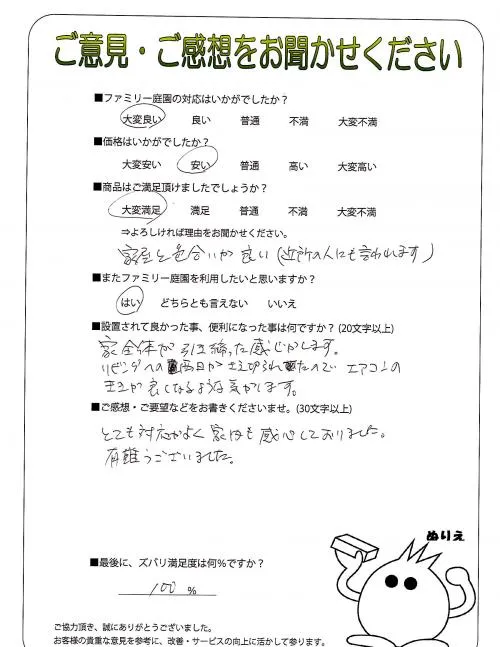 ご意見・ご感想をお聞かせください
■ファミリー庭園の対応はいかがでしたか？
大変良い 良い 普通 不満 大変不満
■価格はいかがでしたか？
大変安い 安い 普通 高い 大変高い
■商品はご満足頂けましたでしょうか？
大変満足 満足 普通 不満 大変不満
⇒よろしければ理由をお聞かせください。
家屋と色合いが良い（近所の人にも言われます）
■またファミリー庭園を利用したいと思いますか？
はい どちらとも言えない いいえ
■設置されて良かった事、便利になった事は何ですか？(20文字以上)
家全体が引き締った感じがします。
リビングへの西日がさえぎられたので エアコンの
が良くなるような気がします。
■ご感想・ご要望などをお書きくださいませ。(30文字以上)
とても対応がよく 家内も感心しておりました。
有難うございました。
ぬりえ
■最後に、ズバリ満足度は何%ですか？
100 %
ご協力頂き、誠にありがとうございました。
お客様の貴重な意見を参考に、改善・サービスの向上に活かして参ります。